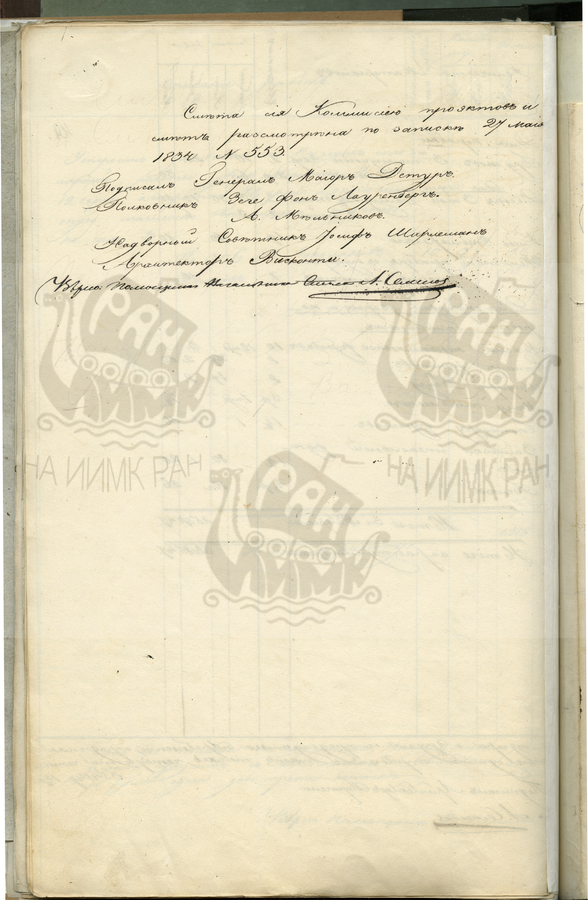 Смѣта сія Коммисіею проэктовъ и
смѣтъ разсмотрѣна по запискѣ 27 мая
1834 N 553.
Подписалъ Генералъ Маіоръ Дестуръ.
Полковникъ Зеге фонъ Лауренбергъ.
А. Мельниковъ.
Надворный Совѣтникъ Іосифъ Шарлемань
Архитекторъ Висконти.
Вѣрно: Помощникъ
РАН
ИИМК
РАН
ИИМК
НА ИИМК РАН
НА ИИМК РАН
РАН
ИИМК